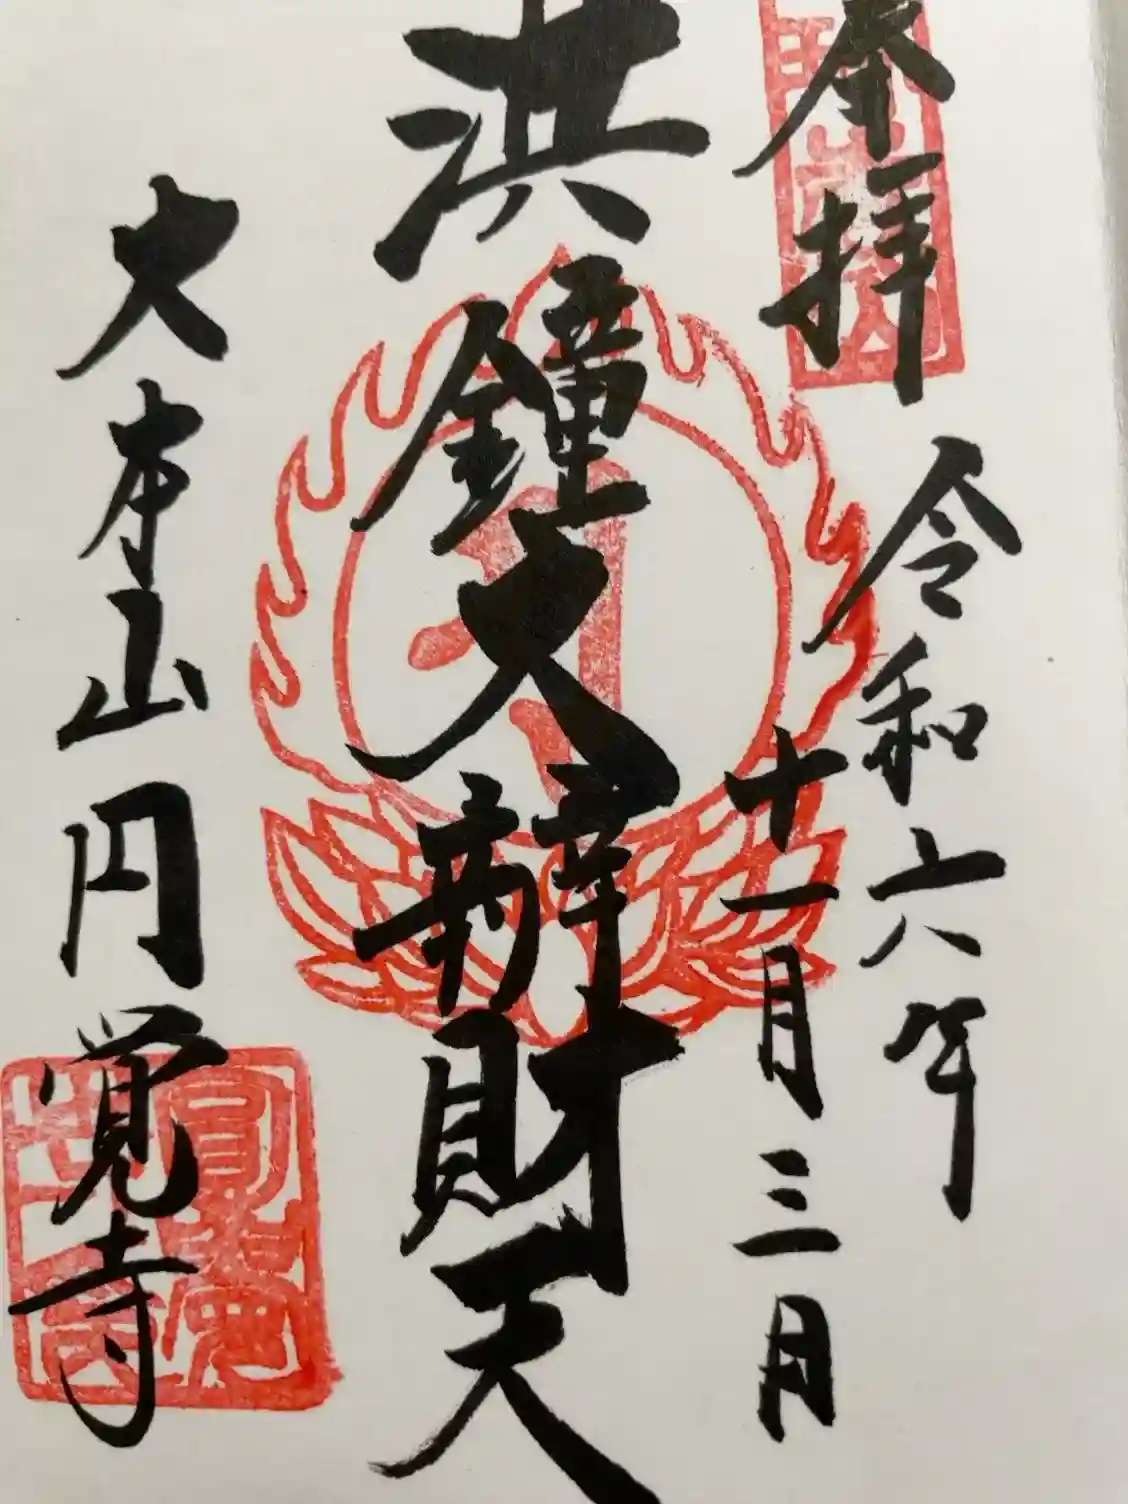 奉拝
令和六年
十一月三日
洪鐘大辯財天
大本山円覚寺